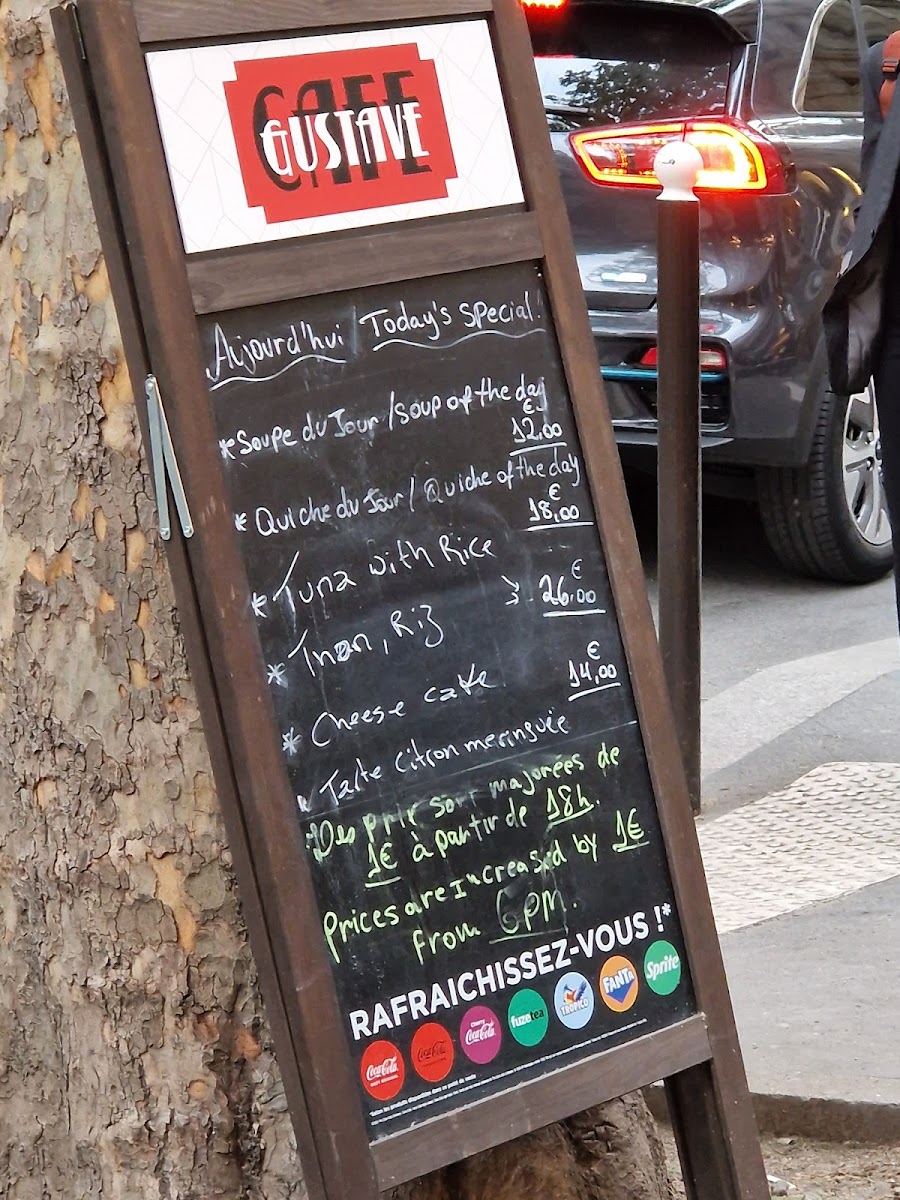 CAFE
GUSTAVE
Aujourd'hui / Today's special!
* Soupe du Jour / Soup of the day
€
12,00
* Quiche du Jour / Quiche of the day
€
18,00
* Tuna with Rice
€
26,00
* Thon, Riz
€
14,00
* Cheese cake
* Tarte citron meringuée
Des prix sont majorées de
1€ à partir de 18h.
Prices are increased by 1€
from 6PM.
RAFRAICHISSEZ-VOUS !*
Coca-Cola
Coca-Cola
Coca-Cola
fuzetea
TROPICO
FANTA
Sprite